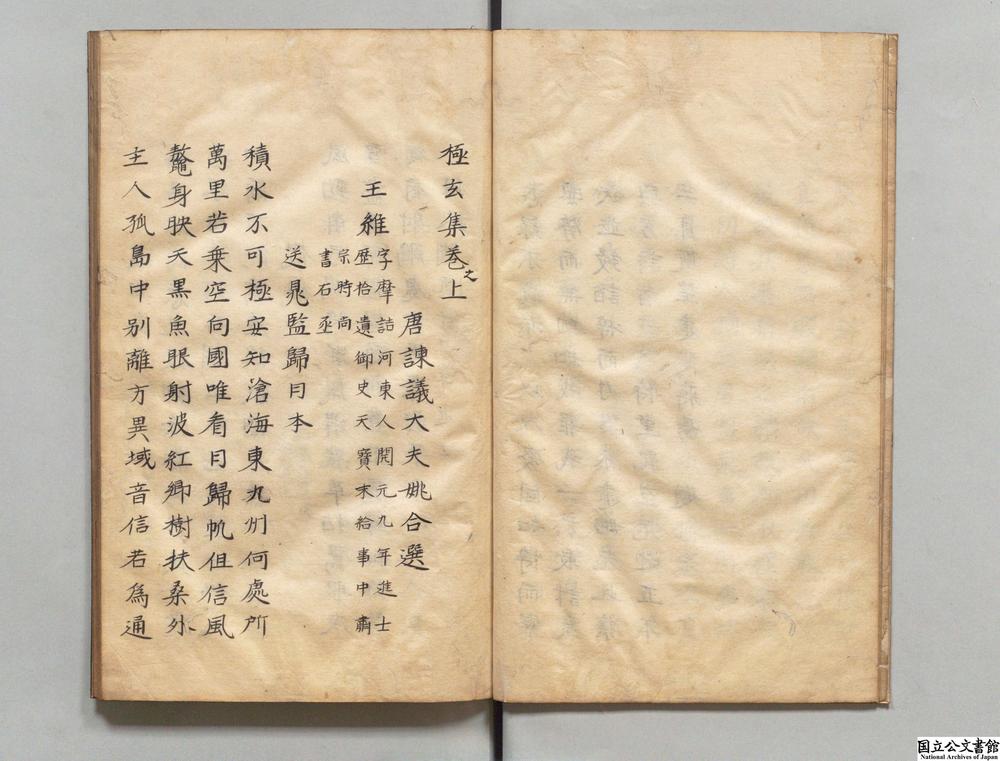 極玄集卷之上
唐諫議大夫姚合選
王維字摩詰河東人開元九年進士
歴拾遺御史天寶末給事中肅
宗時尚
書右丞
送晁監歸日本
積水不可極安知滄海東九州何處所
萬里若乗空向國唯看日歸帆但信風
鼇身映天黒魚眼射波紅鄉樹扶桑外
主人孤島中别離方異域音信若爲通
国立公文書館
National Archives of Japan